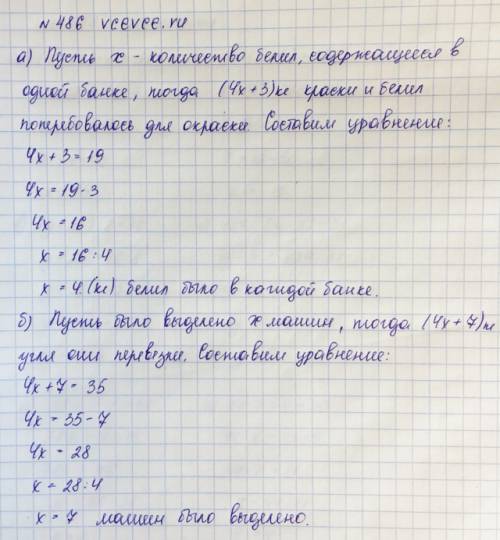 № 486 vcevce.ru
а) Пусть x - количество белил, содержащееся в
одной банке, тогда (4x+3)кг краски и белил
потребовалось для окраски. Составим уравнение:
4x + 3 = 19
4x = 19 - 3
4x = 16
x = 16 : 4
x = 4 (кг) белил было в каждой банке.
б) Пусть было выделено x машин, тогда (4x + 7)кг
угля они перевезли. Составим уравнение:
4x + 7 = 35
4x = 35 - 7
4x = 28
x = 28 : 4
x = 7 машин было выделено.